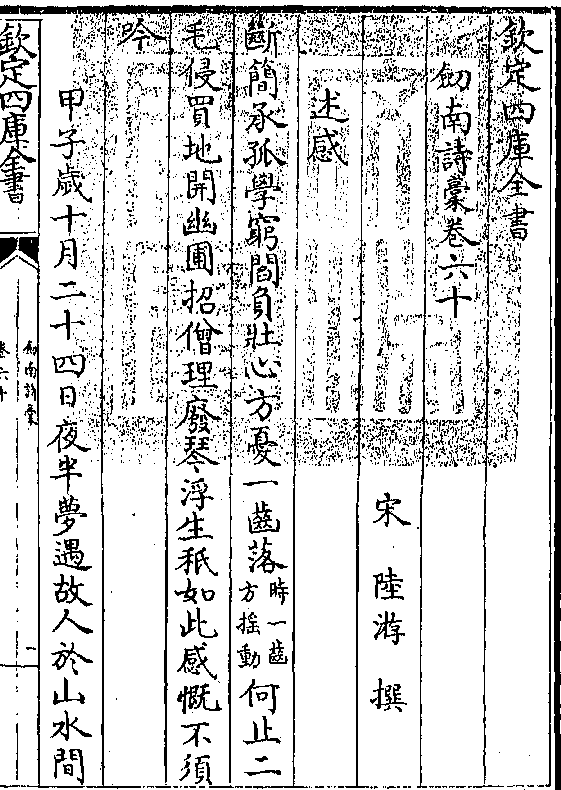 欽定四庫全書
劒南詩稾卷六十
宋 陸游 撰
述感
斷簡承孤學窮閻負壯心方憂一齒落時一齒方揺動何止二
毛侵買地開幽圃招僧理廢琴浮生秖如此感慨不須
吟
甲子歲十月二十四日夜半夢遇故人於山水間
欽定四庫全書
劒南詩稾
卷六十
一